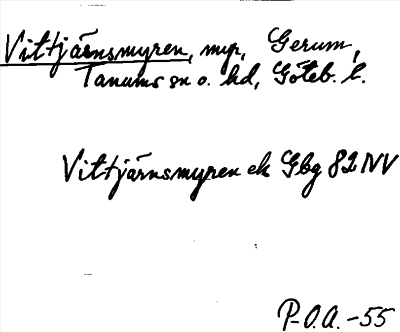 Vittjärnsmyren, myr, Gerum,
Tanums sn o. hd, Göteb. l.
Vittjärnsmyren ek Gbg 82 NV
P-O.A. -55